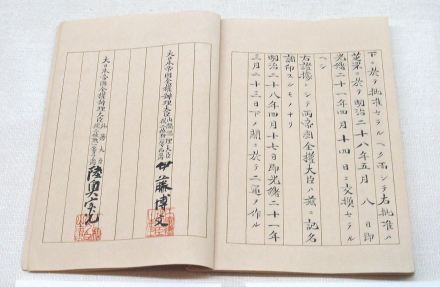 下ニ於テ批准セラルヘク而シテ右批准ハ
芝罘ニ於テ明治二十八年五月八日即
光緒二十一年四月十四日ニ交換セラル
ヘシ
右證據トシテ兩帝國全權大臣ハ茲ニ記名
調印スルモノナリ
明治二十八年四月十七日即光緒二十一年
三月二十三日下ノ關ニ於テ二通ヲ作ル
大日本帝國全權辨理大臣 伊藤博文
大日本帝國全權辨理大臣 陸奥宗光